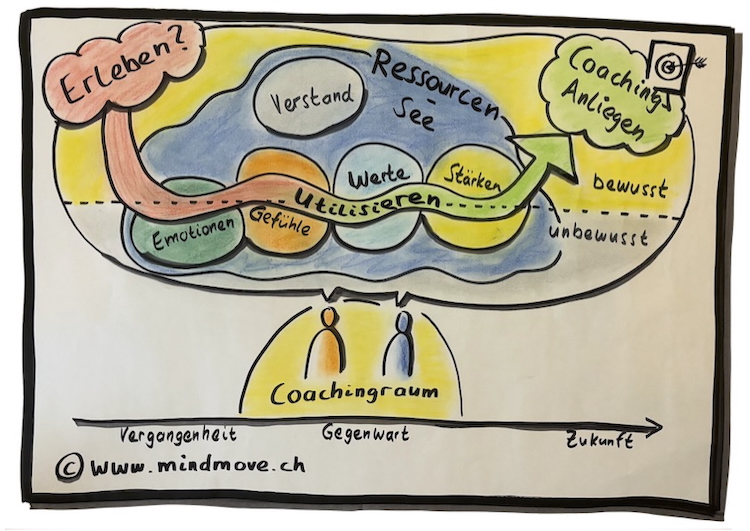 Erleben?
Ressourcen-
See
Coachings
Anliegen
Verstand
Werte
Stärken
Utilisieren
Emotionen
Gefühle
bewusst
unbewusst
Coachingraum
Vergangenheit
Gegenwart
Zukunft
© www.mindmove.ch